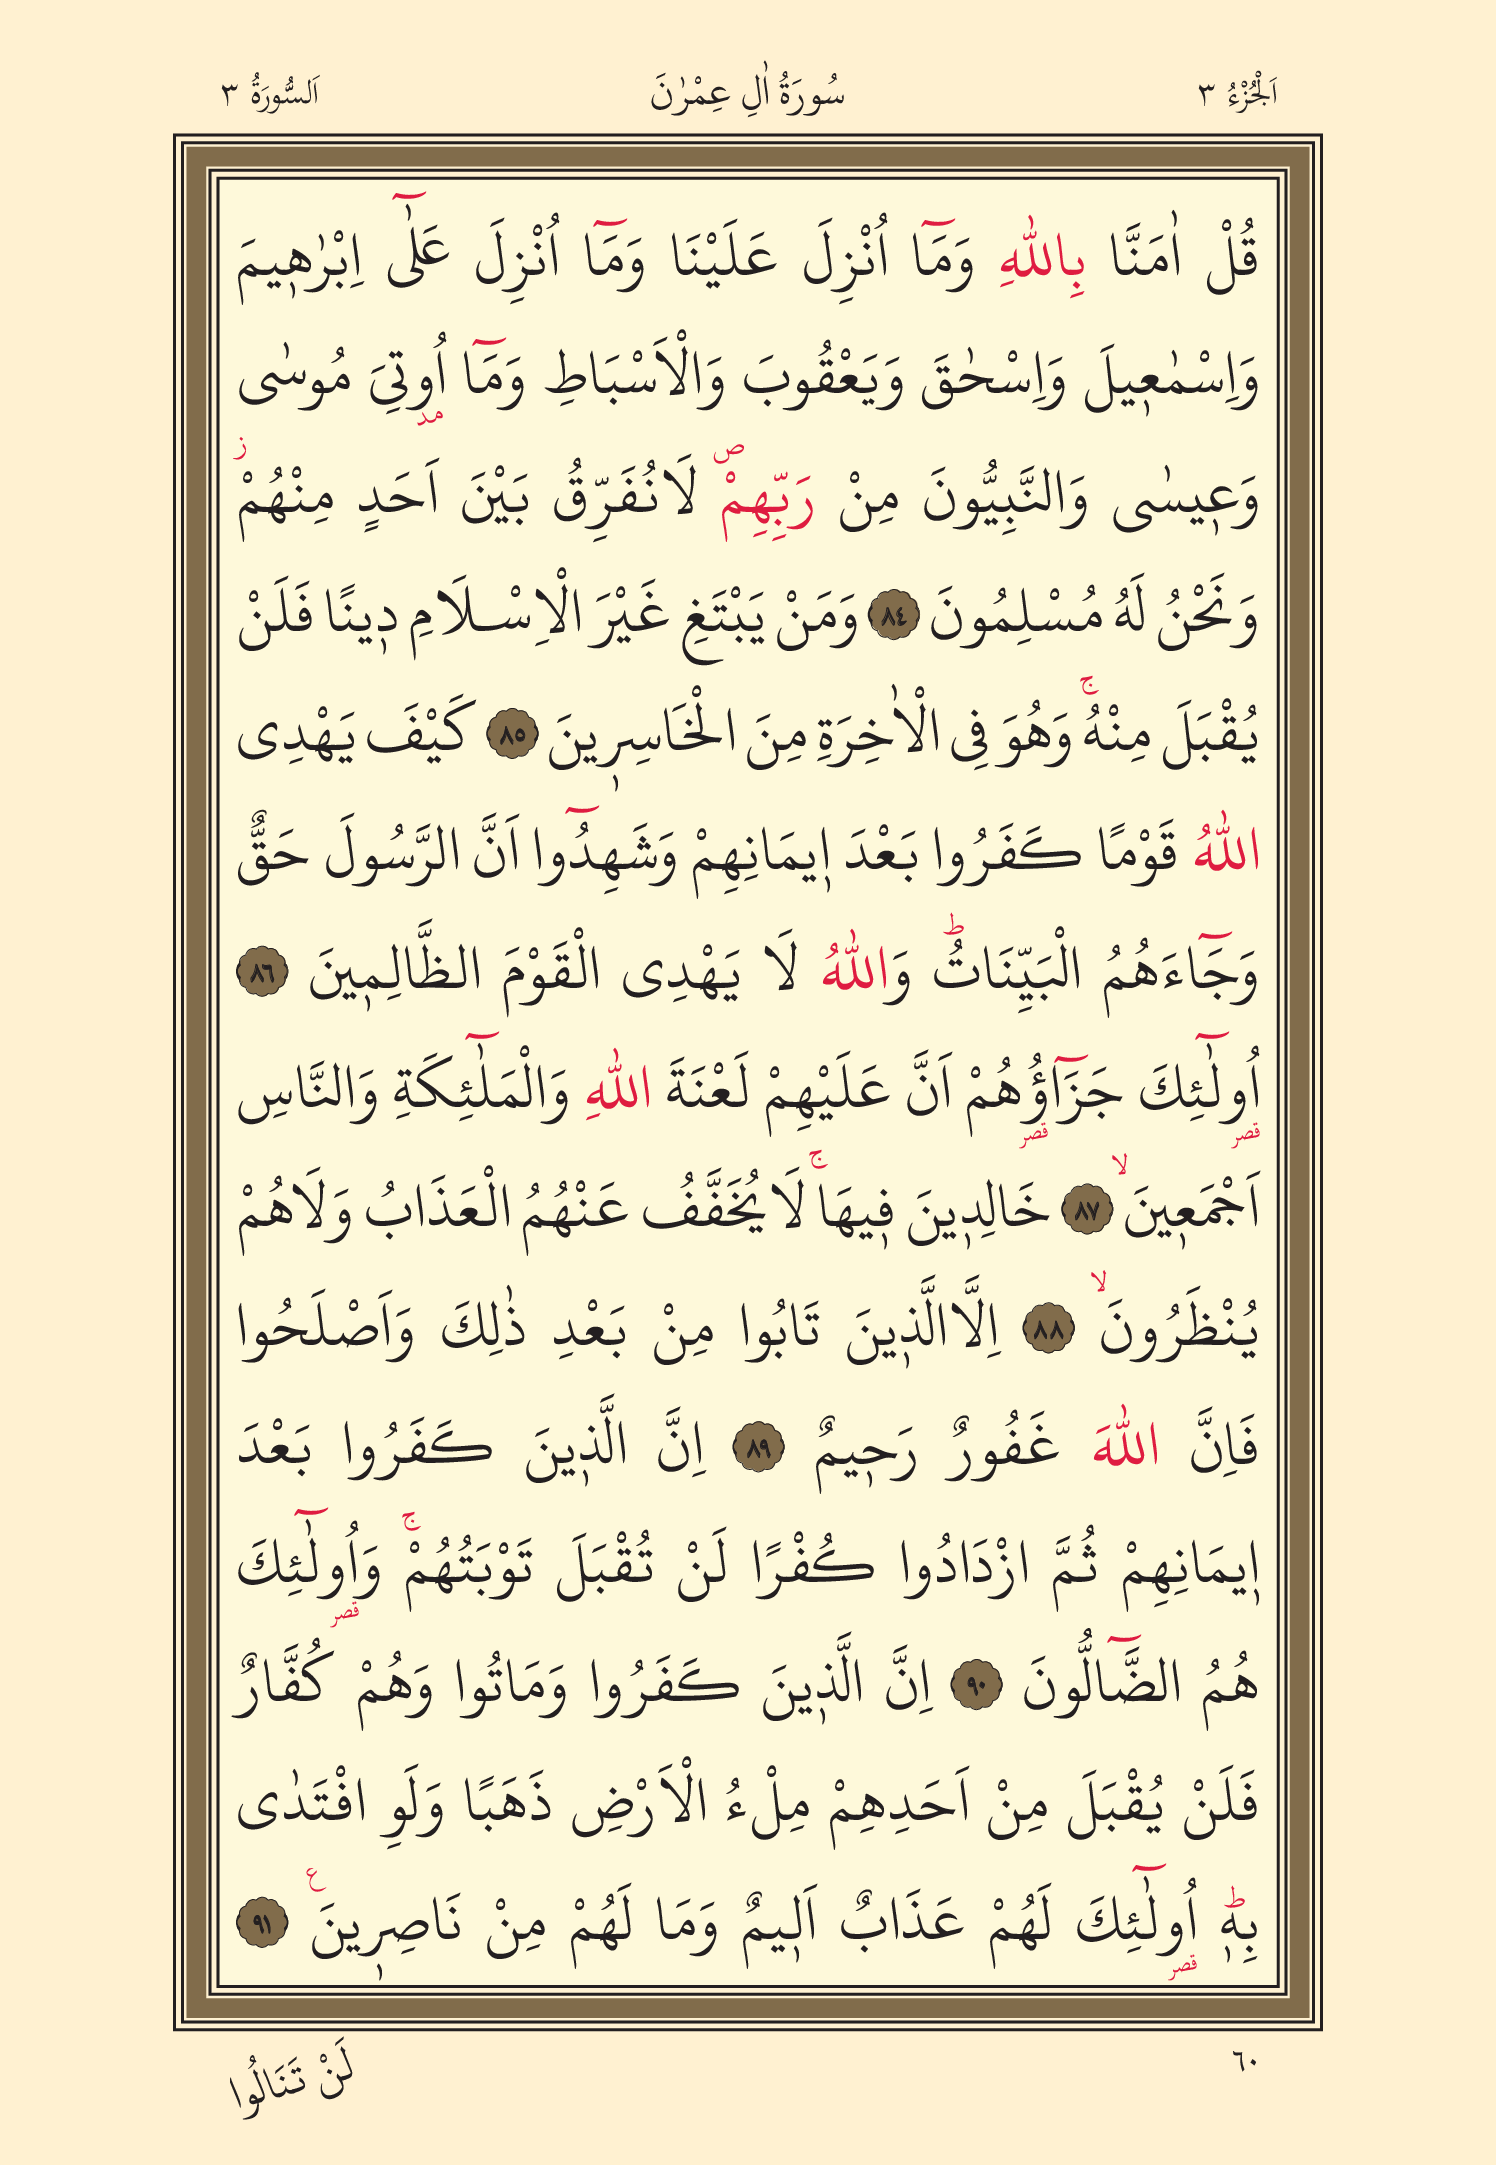 اَلْجُزْءُ ٣ سُورَةُ اٰلِ عِمْرٰنَ اَلسُّورَةُ ٣
قُلْ اٰمَنَّا بِاللّٰهِ وَمَٓا اُنْزِلَ عَلَيْنَا وَمَٓا اُنْزِلَ عَلٰٓى اِبْرٰه۪يمَ
وَاِسْمٰع۪يلَ وَاِسْحٰقَ وَيَعْقُوبَ وَالْاَسْبَاطِ وَمَٓا اُو۫تِيَ مُوسٰى
مد
وَع۪يسٰى وَالنَّبِيُّونَ مِنْ رَبِّهِمْۖ لَانُفَرِّقُ بَيْنَ اَحَدٍ مِنْهُمْۘ ز
وَنَحْنُ لَهُ مُسْلِمُونَ ٨٤ وَمَنْ يَبْتَغِ غَيْرَ الْاِسْلَامِ د۪ينًا فَلَنْ
يُقْبَلَ مِنْهُۚ وَهُوَ فِى الْاٰخِرَةِ مِنَ الْخَاسِر۪ينَ ٨٥ كَيْفَ يَهْدِى
اللّٰهُ قَوْمًا كَفَرُوا بَعْدَ ا۪يمَانِهِمْ وَشَهِدُٓوا اَنَّ الرَّسُولَ حَقٌّ
وَجَٓاءَهُمُ الْبَيِّنَاتُۜ وَاللّٰهُ لَا يَهْدِى الْقَوْمَ الظَّالِم۪ينَ ٨٦
اُولٰٓئِكَ جَزَٓاؤُهُمْ اَنَّ عَلَيْهِمْ لَعْنَةَ اللّٰهِ وَالْمَلٰٓئِكَةِ وَالنَّاسِ
قصر قصر
اَجْمَع۪ينَۙ ٨٧ خَالِد۪ينَ ف۪يهَاۚ لَايُخَفَّفُ عَنْهُمُ الْعَذَابُ وَلَاهُمْ
يُنْظَرُونَۙ ٨٨ اِلَّاالَّذ۪ينَ تَابُوا مِنْ بَعْدِ ذٰلِكَ وَاَصْلَحُوا
فَاِنَّ اللّٰهَ غَفُورٌ رَح۪يمٌ ٨٩ اِنَّ الَّذ۪ينَ كَفَرُوا بَعْدَ
ا۪يمَانِهِمْ ثُمَّ ازْدَادُوا كُفْرًا لَنْ تُقْبَلَ تَوْبَتُهُمْۚ وَاُولٰٓئِكَ
قصر
هُمُ الضَّٓالُّونَ ٩٠ اِنَّ الَّذ۪ينَ كَفَرُوا وَمَاتُوا وَهُمْ كُفَّارٌ
فَلَنْ يُقْبَلَ مِنْ اَحَدِهِمْ مِلْءُ الْاَرْضِ ذَهَبًا وَلَوِ افْتَدٰى
بِه۪ۜ اُولٰٓئِكَ لَهُمْ عَذَابٌ اَل۪يمٌ وَمَا لَهُمْ مِنْ نَاصِر۪ينَ ع ٩١
قصر
٦٠
لَنْ تَنَالُوا